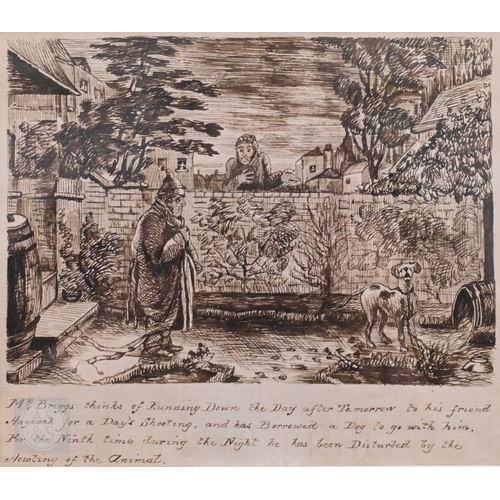 Mr Briggs thinks of Running Down the Day after Tomorrow to his friend
Haycock for a Day's Shooting, and has Borrowed a Dog to go with him.
For the Ninth time during the Night he has been Disturbed by the
Howling of the Animal.